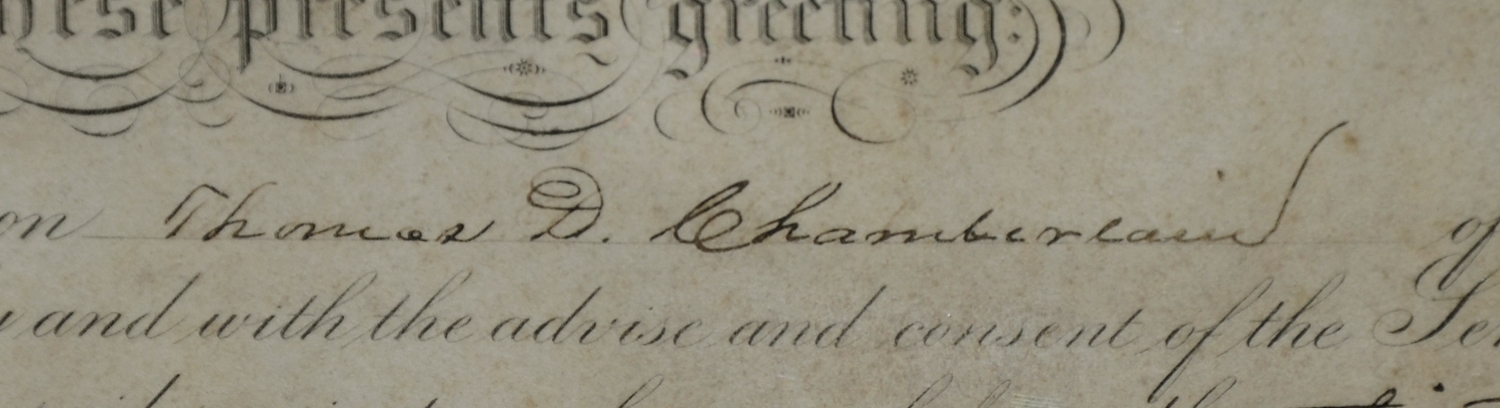 these presents greeting:
on Thomas D. Chamberlain of
and with the advise and consent of the Sen